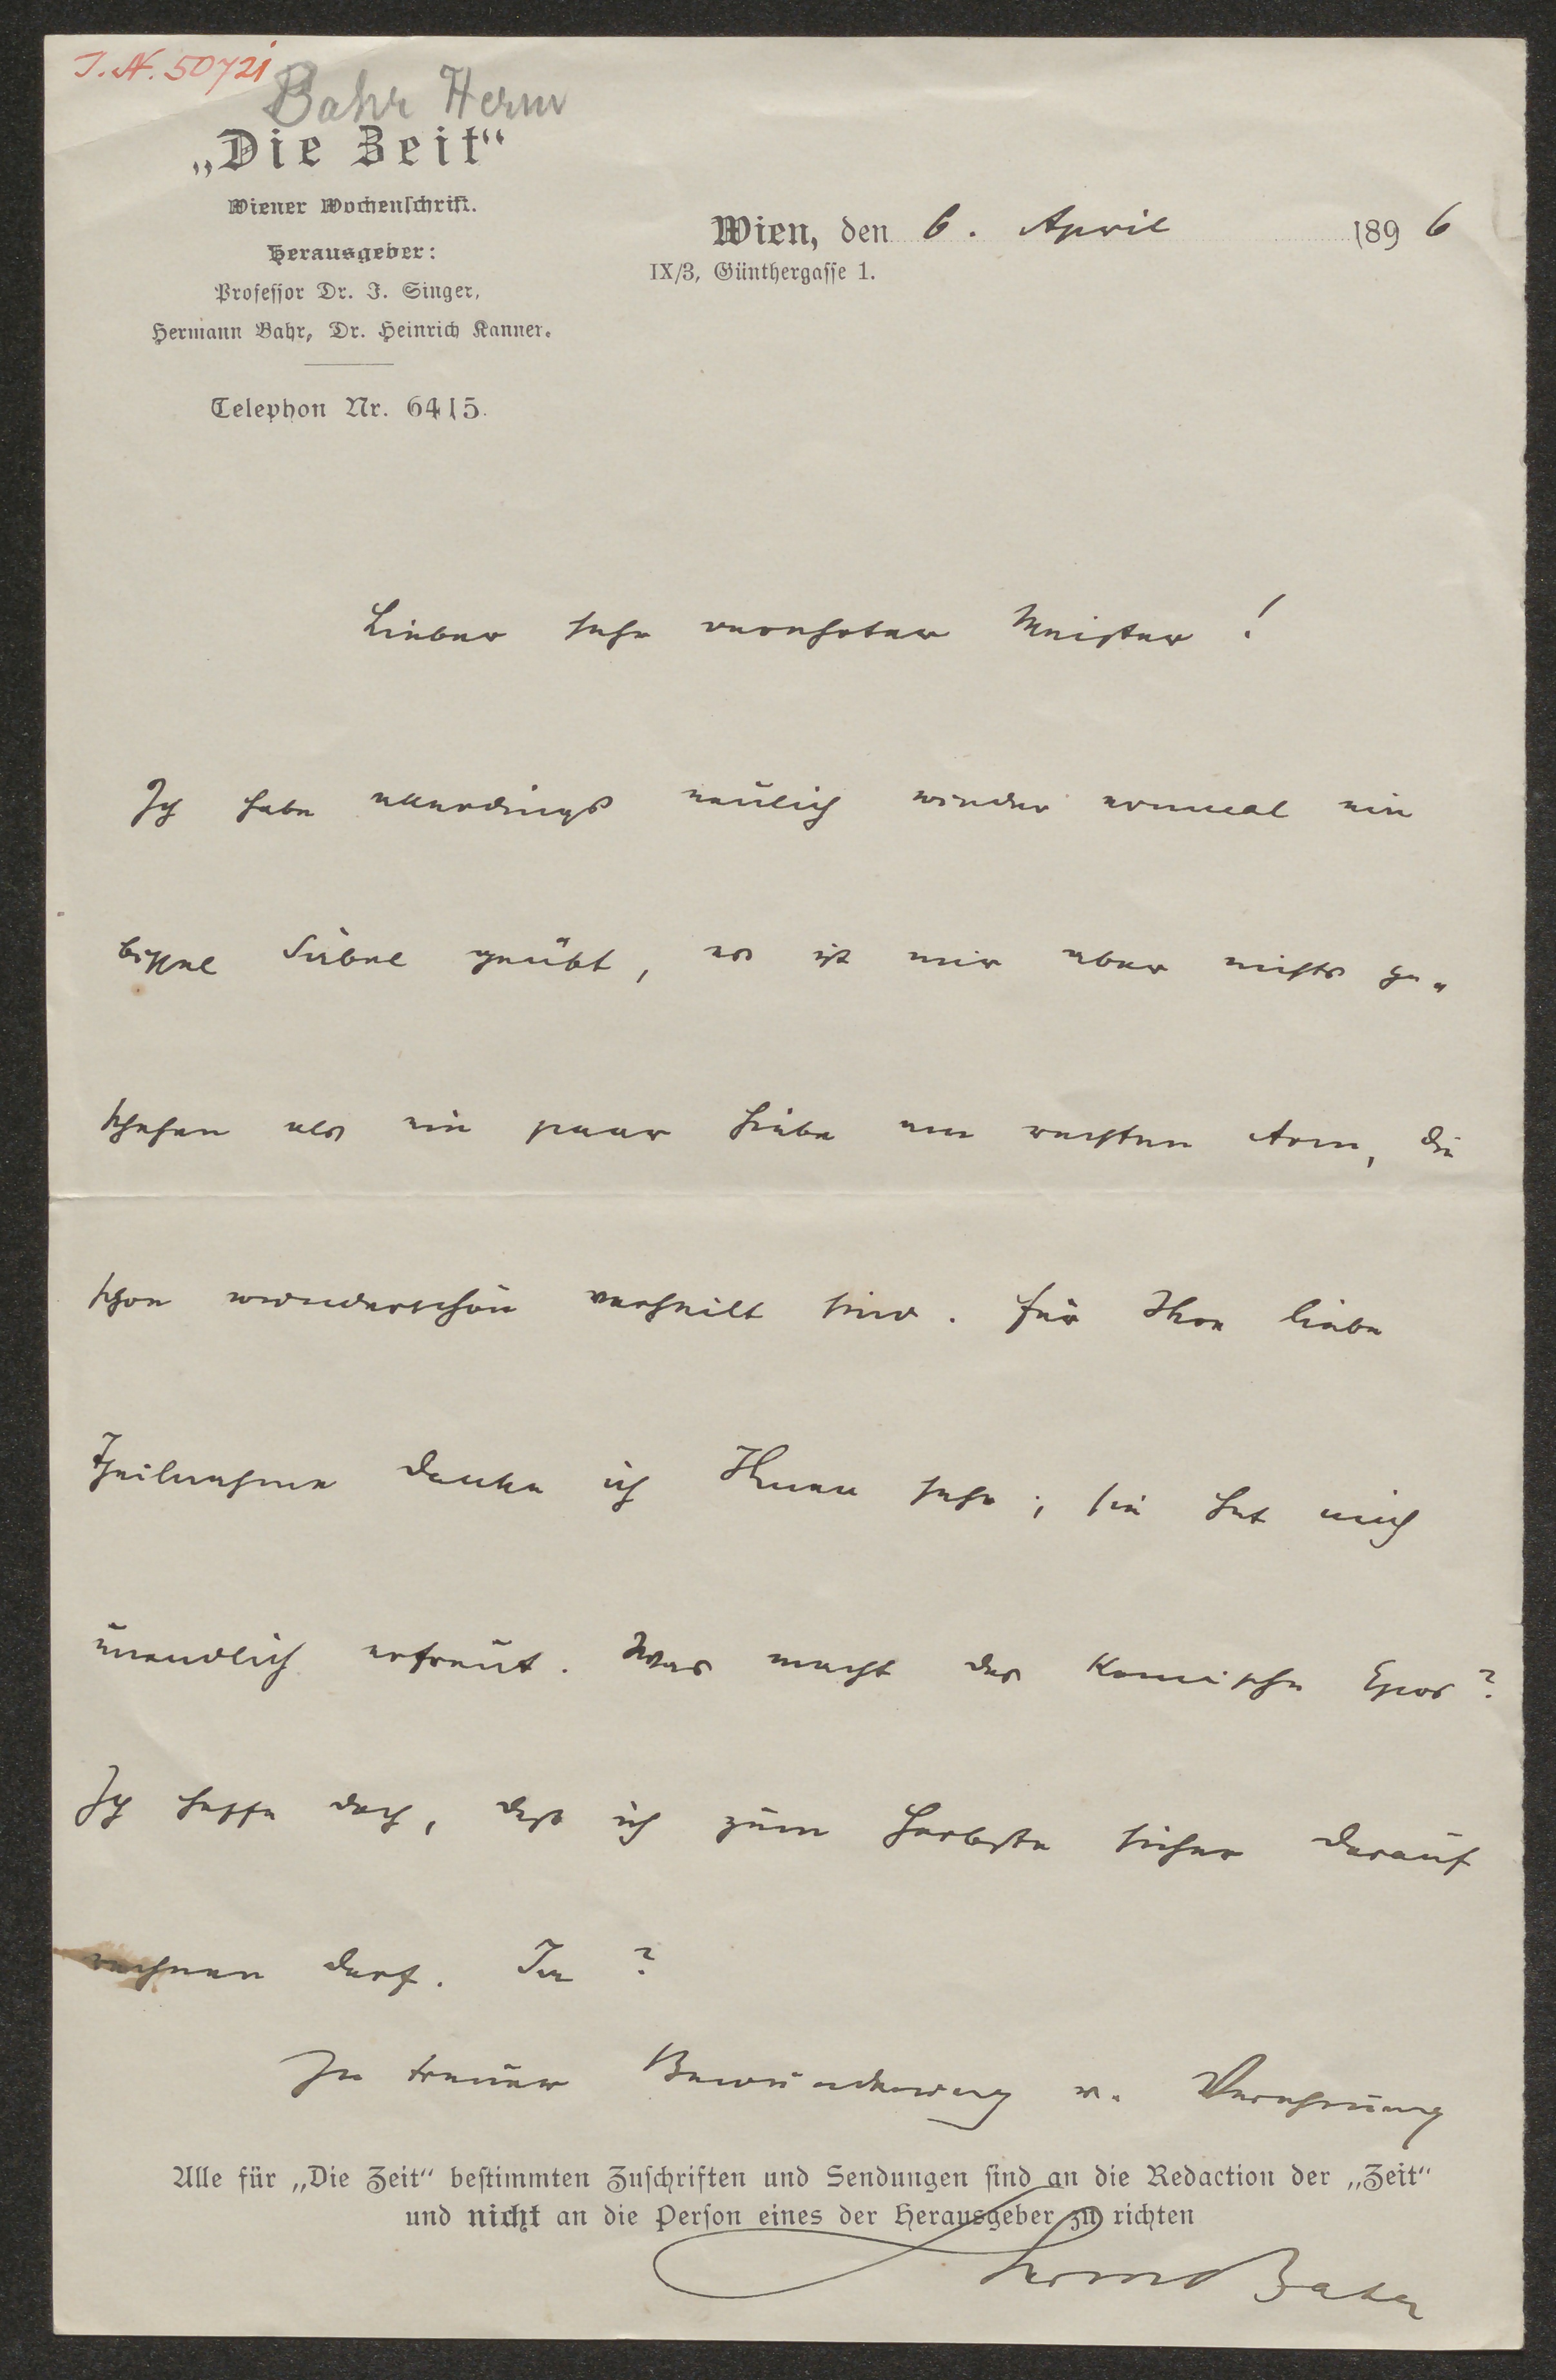 J. N. 50721
Bahr Herm
„Die Zeit“
Wiener Wochenschrift.
Herausgeber:
Professor Dr. J. Singer,
Hermann Bahr, Dr. Heinrich Kanner.
Telephon Nr. 6415.
Wien, den 6. April 1896
IX/3, Günthergasse 1.
Lieber sehr verehrter Meister!
Ich habe allerdings neulich wieder einmal ein
bissel Säbel geübt, es ist mir aber nichts ge-
schehen als ein paar Hiebe am rechten Arm, die
schon wunderschön verheilt sind. Für Ihre liebe
Theilnahme danke ich Ihnen sehr; sie hat mich
unendlich erfreut. Was macht das komische Epos?
Ich hoffe doch, daß ich zum Herbste sicher darauf
rechnen darf. Ja?
In treuer Bewunderung u. Verehrung
Alle für „Die Zeit“ bestimmten Zuschriften und Sendungen sind an die Redaction der „Zeit“
und nicht an die Person eines der Herausgeber zu richten
HermBahr